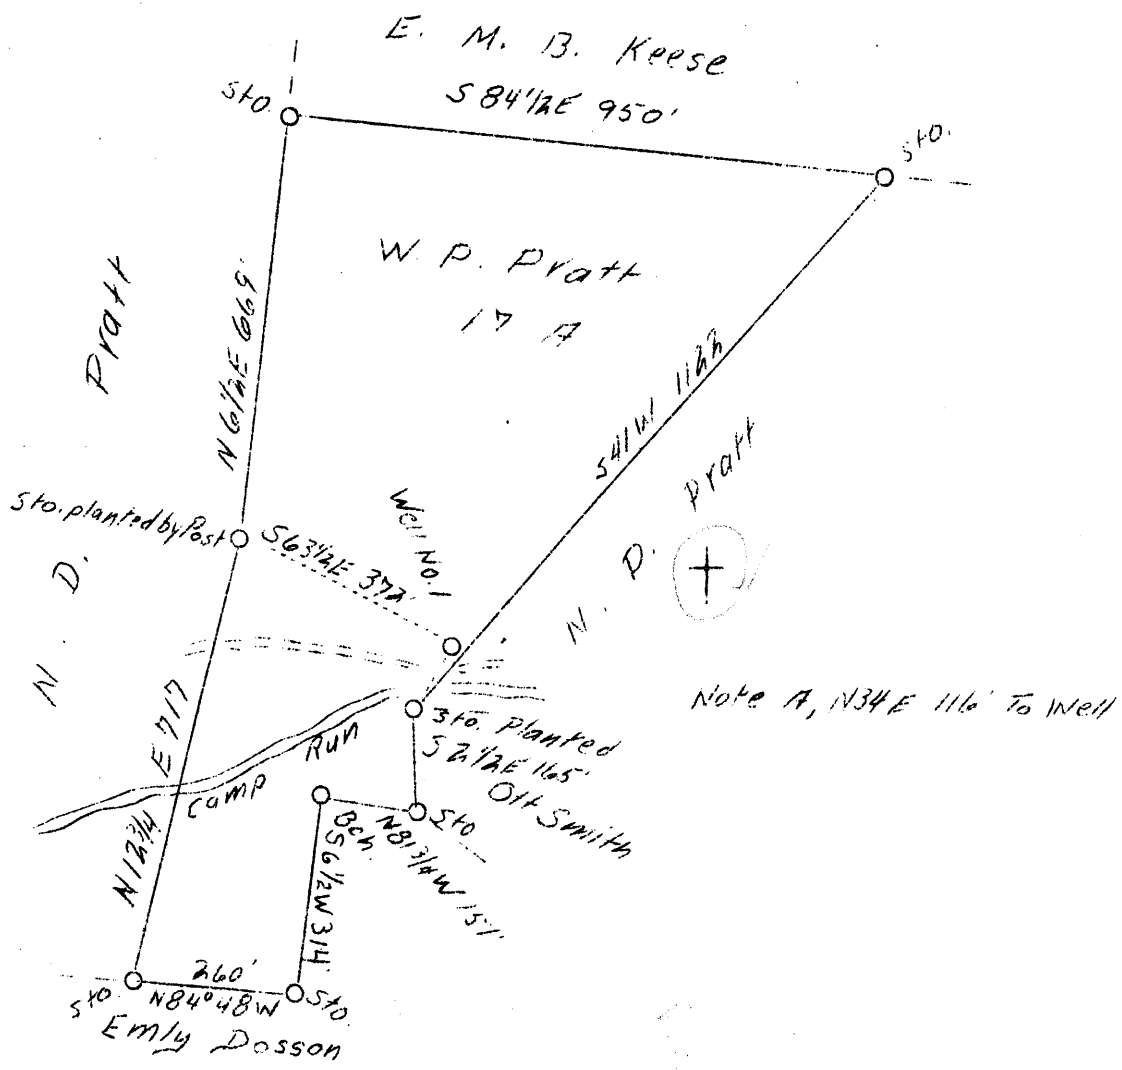 E. M. B. Keese
S 84 1/2 E 950'
Sto.
Sto.
W. P. Pratt
17 A
N. D. Pratt
N 6 1/2 E 669'
S 41 W 1122
N. D. Pratt
Sto. planted by Post
S 63 1/2 E 372'
Well No. 1
Note A, N34E 116' To Well
Sto. Planted
S 2 1/2 E 165'
Ott Smith
Camp Run
N 12 3/4 E 717
Bch.
Sto
N 81 3/4 W 151'
S 6 1/2 W 314'
260'
N84°48W
Sto.
Sto.
Emly Dosson